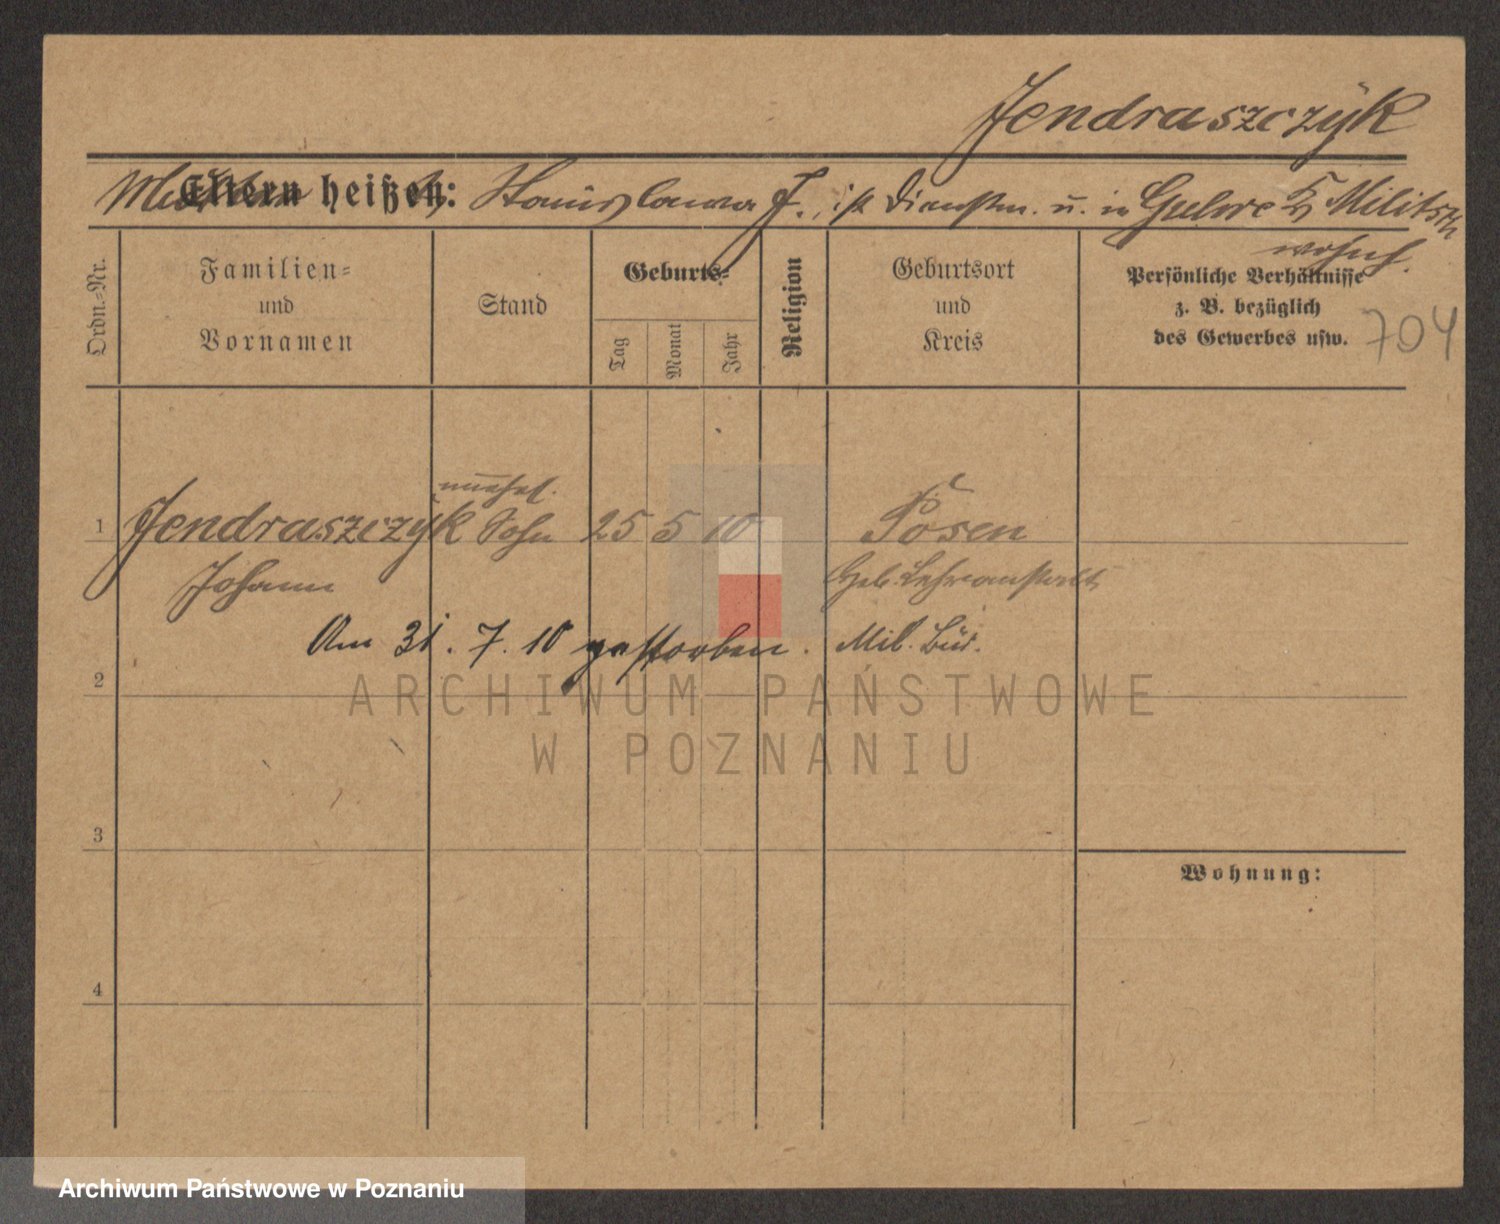 Jendraszczÿk
Mutter Eltern heißen: Stanislawa J., ist Dienstm. u. in Gielwe Kr Militsch
wohnh.
Ordn.=Nr.
Familien=
und
Vornamen
Stand
Geburts=
Tag
Monat
Jahr
Religion
Geburtsort
und
Kreis
Persönliche Verhältnisse
z. B. bezüglich
des Gewerbes usw.
704
unehel.
1 Jendraszczÿk Sohn 25 5 10 Posen
Johann Heb. Lehranstalt
Am 31. 7. 10 gestorben. Mil. Bür.
2
ARCHIWUM PAŃSTWOWE
W POZNANIU
3
Wohnung:
4
Archiwum Państwowe w Poznaniu